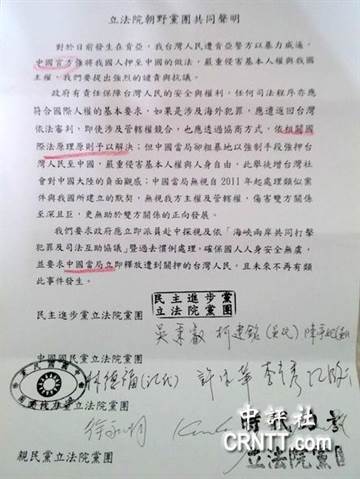 立法院朝野黨團共同聲明
對於目前發生在肯亞,我台灣人民遭肯亞警方以暴力威逼,
中國官方俘將我國人押至中國的做法,嚴重侵害基本人權與我國
主權,我們要提出強烈的譴責與抗議。
政府有責任保障台灣人民的安全與權利,任何司法程序亦應
符合國際人權的基本要求,如果是涉及海外犯罪,應遣返回台灣
依法審判,即使涉及管轄權競合,也應透過協商方式,依相關國
際法原理原則予以解決;但中國當局卻粗暴地以強制手段強押台
灣人民至中國,嚴重侵害基本人權與人身自由,此舉徒增台灣社
會對中國大陸的負面觀感;中國當局無視自2011年起處理類似案
件與我國所建立的默契,無視我方主權及管轄權,傷害雙方關係
至深且巨,更無助於雙方關係的正向發展。
我們要求政府應立即派員赴中探視及依「海峽兩岸共同打擊
犯罪及司法互助協議」暨過去慣例處理,確保國人人身安全無虞,
並要求中國當局立即釋放遭到關押的台灣人民,且未來不再有類
此事件發生。
民主進步黨
立法院黨團
民主進步黨立法院黨團
吳秉叡 柯建銘
中國國民黨立法院黨團
林德福
時代力量
立法院黨團
親民黨立法院黨團
中評社
CRNTT.com